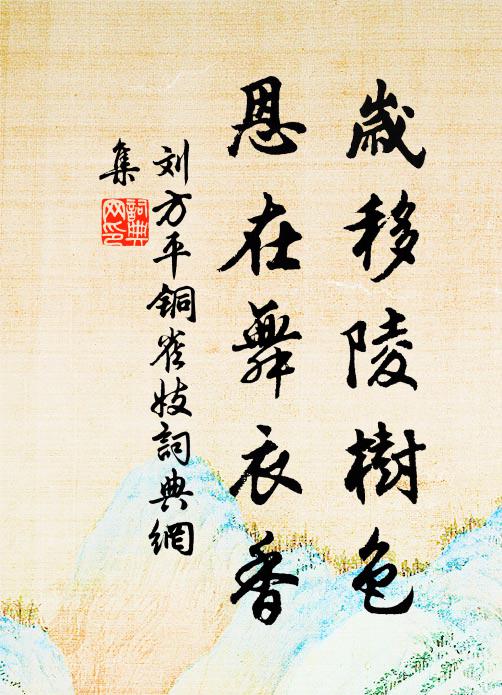 歲移陵樹色
恩在舞衣香
刘方平铜雀妓詞典網
集
詞典
网印